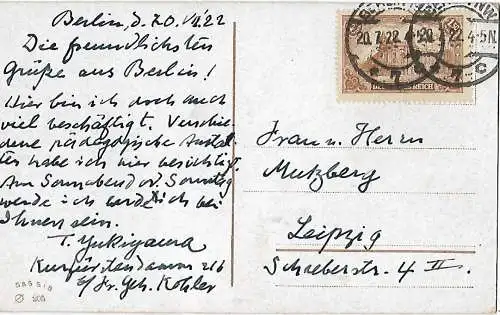 Berlin, d. 20. VII. 22
Die freundlichsten
Grüße aus Berlin!
Hier bin ich doch auch
viel beschäftigt. Verschie-
dene pädagogische Anstal-
ten habe ich hier besichtigt.
Am Sonnabend od. Sonntag
werde ich wieder bei
Ihnen sein.
T. Yukiyama
Kurfürstendamm 216
b/ Fr. Geh. Kohler
BERLIN
20.7.22. 4-5N.
20.7.22. 4-5N.
DEUTSCHES REICH
7
7
c
Frau u. Herrn
Mutzberg
Leipzig
Schreberstr. 4 II.